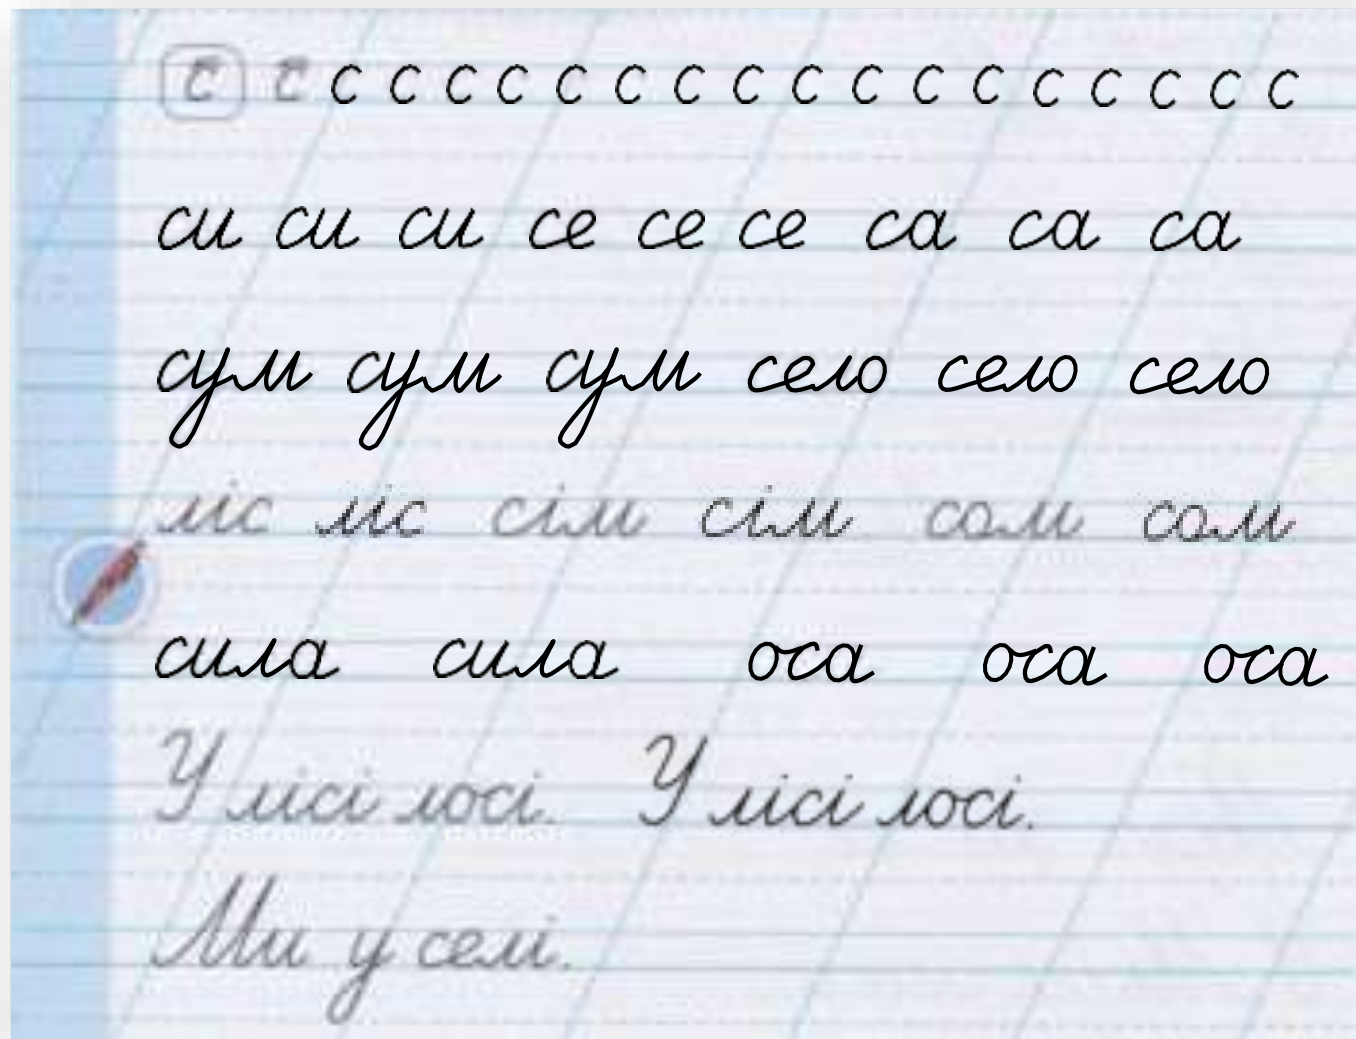 с с с с с с с с с с с с с с с с с с с
си си си се се се са са са
сум сум сум село село село
ліс ліс сім сім сом сом
сила сила оса оса оса
У лісі лосі. У лісі лосі.
Ми у селі.